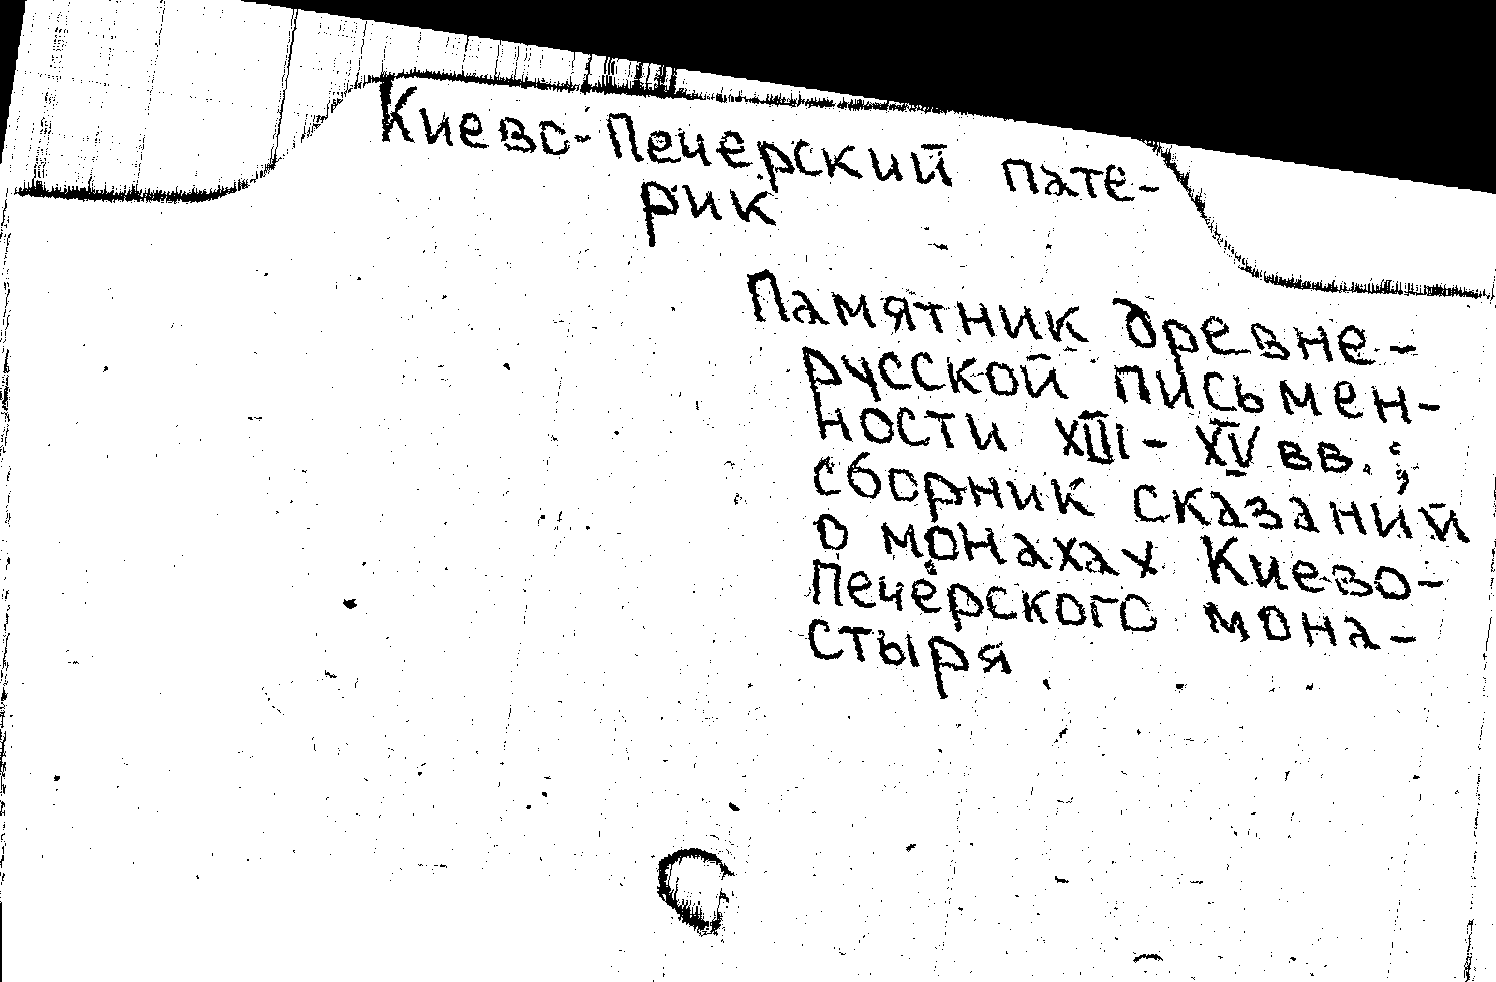 Киево-Печерский пате-
рик
Памятник древне-
русской письмен-
ности XIII-XV вв.;
сборник сказаний
о монахах Киево-
Печерского мона-
стыря